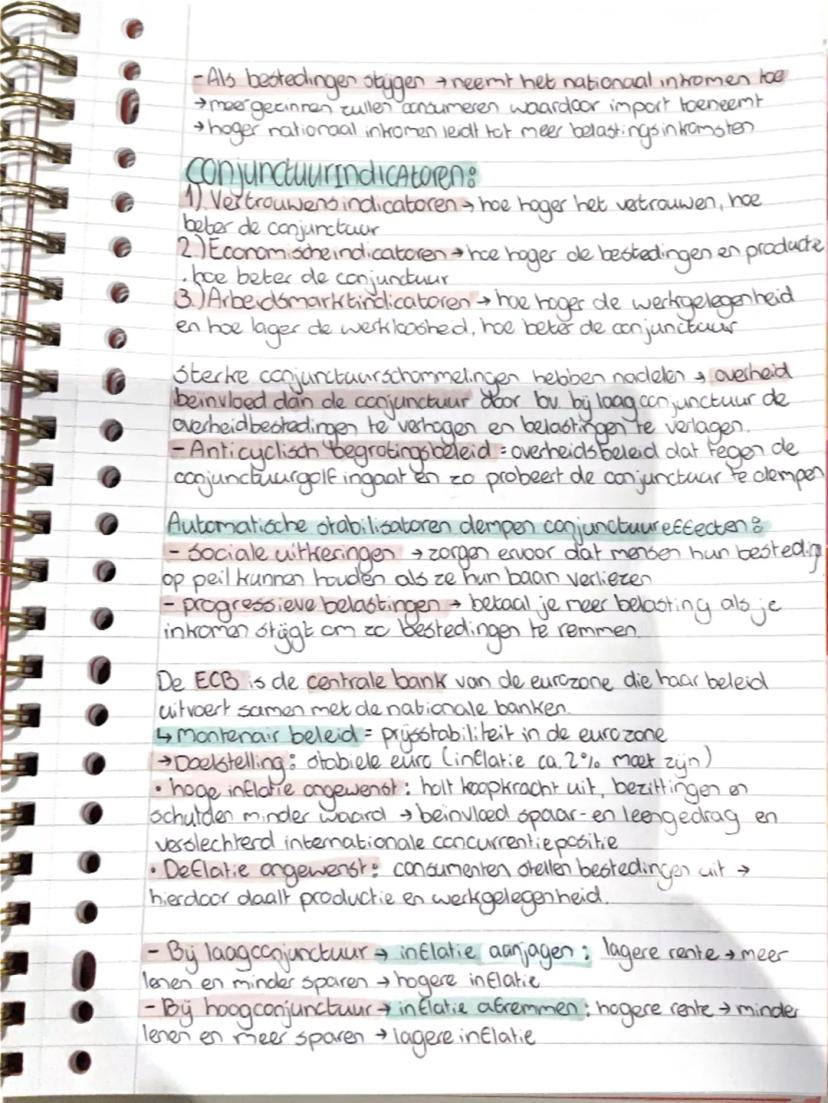 - Als bestedingen stijgen → neemt het nationaal inkomen toe
→ meer gezinnen zullen consumeren waardoor import toeneemt
→ hoger nationaal inkomen leidt tot meer belastingsinkomsten
Conjunctuurindicatoren:
1) Vertrouwensindicatoren → hoe hoger het vertrouwen, hoe
beter de conjunctuur
2.) Economische indicatoren → hoe hoger de bestedingen en productie
. hoe beter de conjunctuur
3.) Arbeidsmarktindicatoren → hoe hoger de werkgelegenheid
en hoe lager de werkloosheid, hoe beter de conjunctuur
Sterke conjunctuurschommelingen hebben nadelen → overheid
beinvloed dan de conjunctuur door bv bij laagconjunctuur de
overheidbestedingen te verhogen en belastingen te verlagen.
- Anticyclisch begrotingsbeleid = overheidsbeleid dat tegen de
conjunctuurgolf ingaat en zo probeert de conjunctuur te dempen
Automatische stabilisatoren dempen conjunctuureffecten:
- sociale uitkeringen → zorgen ervoor dat mensen hun besteding
op peil kunnen houden als ze hun baan verliezen
- progressieve belastingen → betaal je meer belasting als je
inkomen stijgt om zo bestedingen te remmen
De ECB is de centrale bank van de eurozone die haar beleid
uitvoert samen met de nationale banken.
↳ montenair beleid = prijsstabiliteit in de eurozone
→ Doelstelling: stabiele euro (inflatie ca. 2% moet zijn)
• hoge inflatie ongewenst: holt koopkracht uit, bezittingen en
schulden minder waard → beinvloed spaar- en leengedrag en
verslechterd internationale concurrentiepositie
• Deflatie ongewenst: consumenten stellen bestedingen uit →
hierdoor daalt productie en werkgelegenheid.
- Bij laagconjunctuur → inflatie aanjagen: lagere rente → meer
lenen en minder sparen → hogere inflatie
- Bij hoogconjunctuur → inflatie afremmen: hogere rente → minder
lenen en meer sparen → lagere inflatie